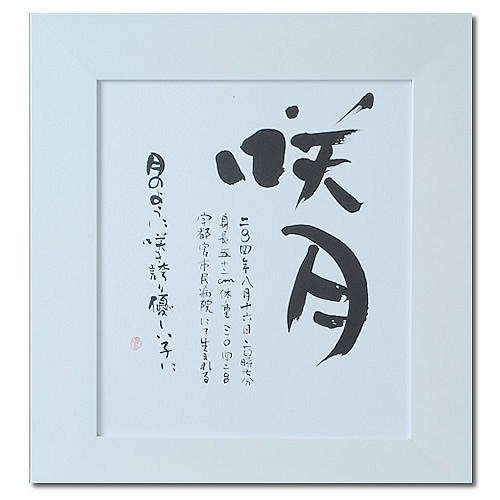 咲月
二〇〇四年八月十六日二〇時七分
身長五十二cm体重三〇四二g
宇都宮市民病院にて生まれる
月のように咲き誇り優しい子に